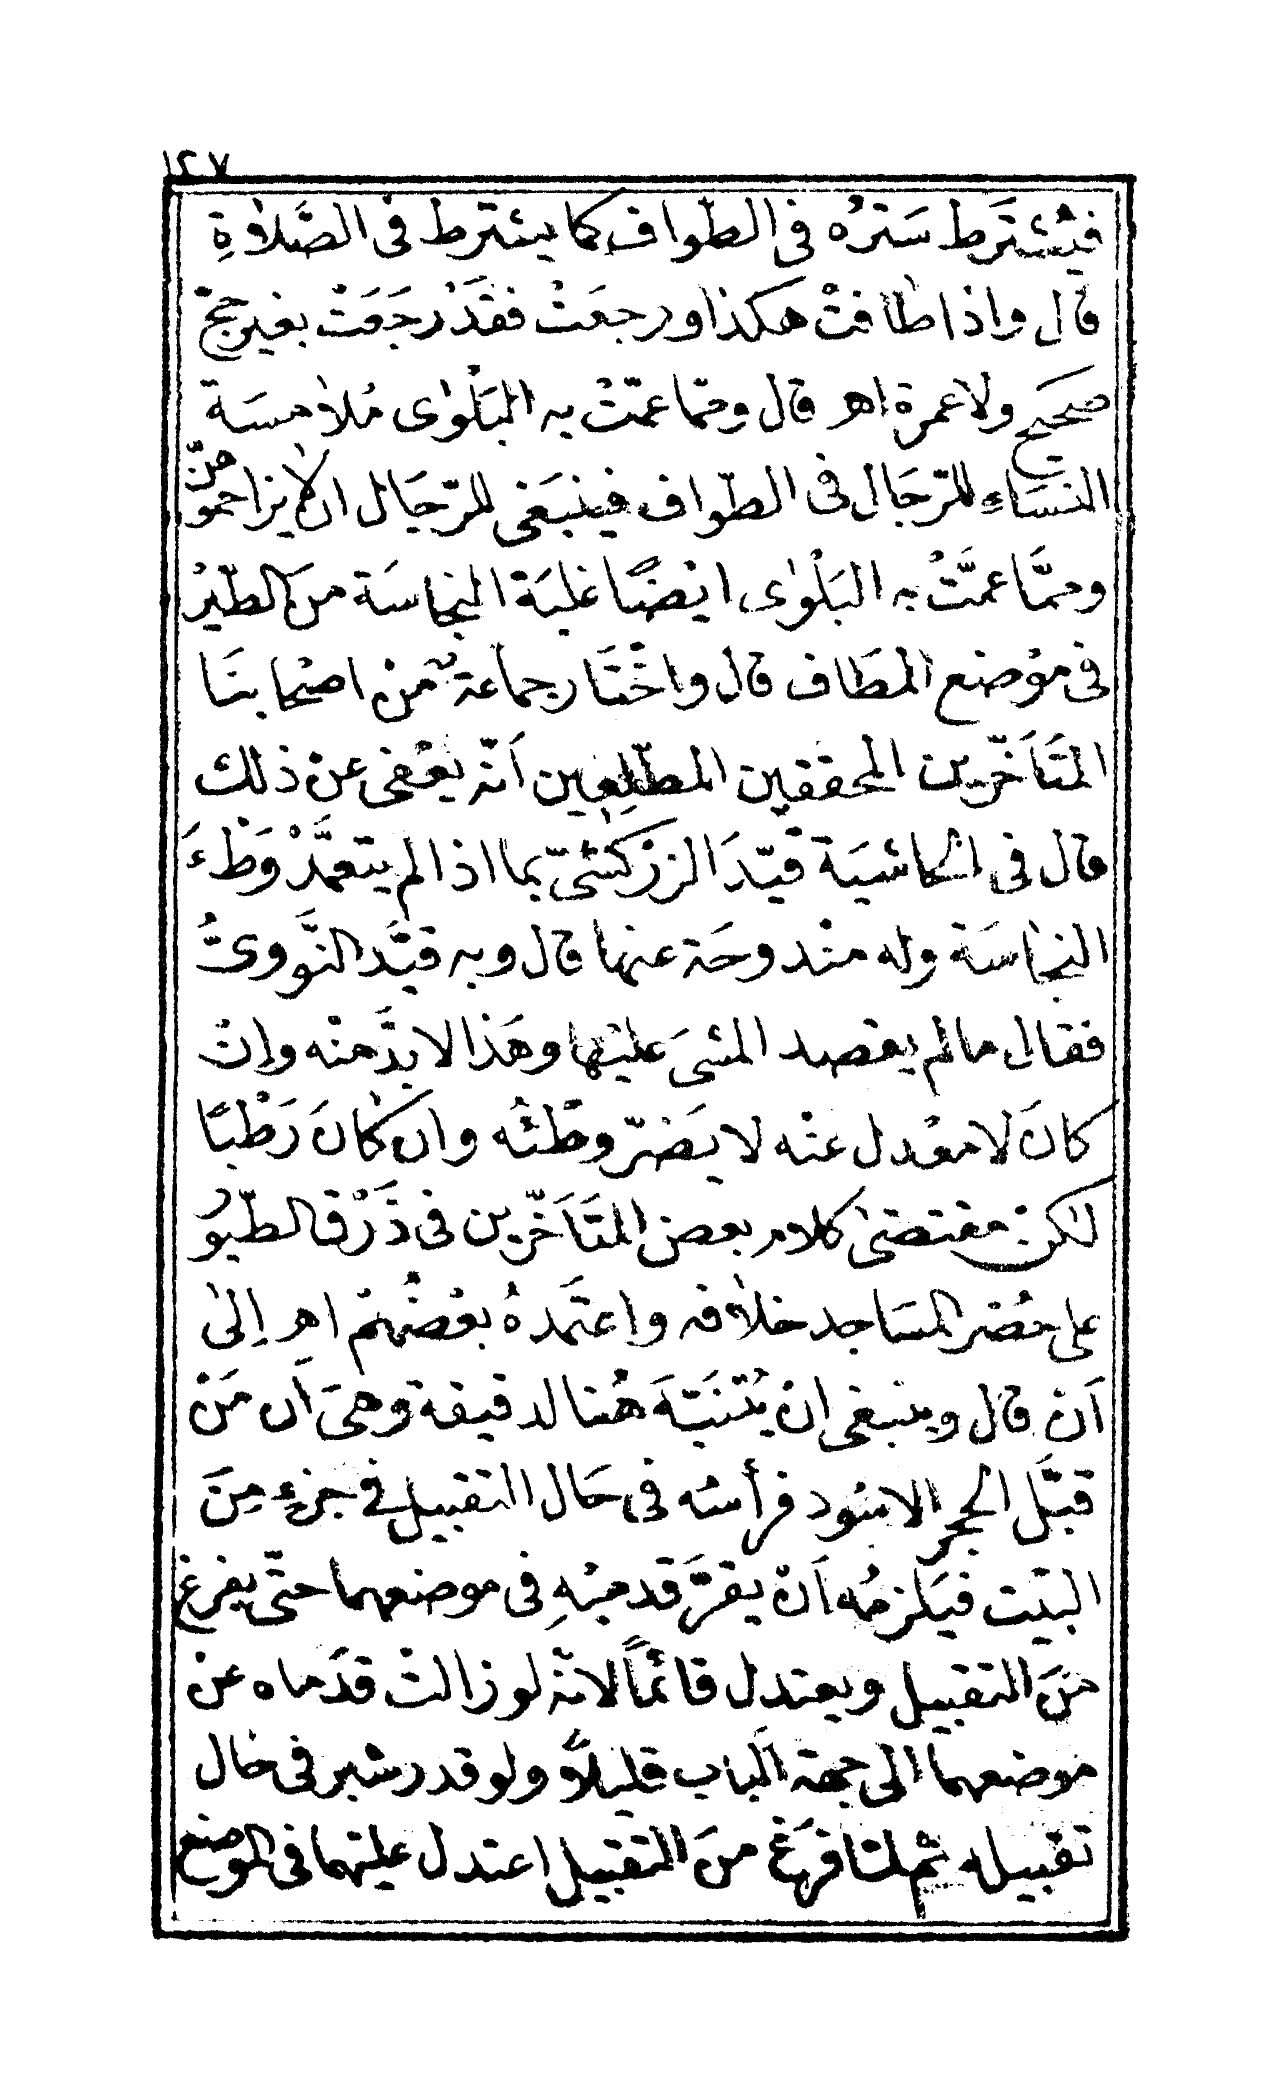 ١٢٧
فيُشْتَرَط سَترُه فى الطّواف كما يشترط فى الصَّلاٰةِ
قال واذا طافتْ هكذا ورجعَتْ فقَدْ رجَعَتْ بغير حجّ
صحيح ولا عمرة اهـ قال وممّا عمّتْ به البَلْوٰى مُلاٰمسَة
النسَاءِ للرّجَال فى الطّواف فينبَغى للرّجَال ان لاٰ يزاحموهنّ
وممَّا عمَّتْ به البَلْوٰى ايْضًا غلبَة النجاسَة منَ الطّيْر
فى موْضع المطَاف قال واخْتَار جماعةٌ منْ اصْحابنَا
المتَأَخّرين المحققين المطّلِعين أنّه يعْفى عنْ ذلك
قال فى الحَاشيَة قيّدَ الزرْكَشىّ بما اذا لم يتعمَّدْ وَطْءَ
النجٰاسَة وله منْدوحَة عنها قال وبه قيَّد النَّووىُّ
فقال ما لم يقصد المشىَ عليْها وهَذا لا بدَّ منْه وإنْ
كانَ لا معْدل عنْه لا يَضرّ وطْئُه وان كٰانَ رَطْبًا
لٰكنْ مقتضىٰ كلام بعض المتَأَخّرين فى ذَرْق الطّيُور
على حُصْر المسَاجد خلاٰفه واعتَمدهُ بعْضُهمْ اهـ إلىٰ
أنْ قال وينبغى انْ يُتنَبّهَ هُنا لدقيقة وهىَ أن مَنْ
قبَّل الحجر الاسْود فرأسُه فى حَال التقبيل فى جزءٍ مِنَ
البيْت فيَلزمُه أنْ يقرَّ قدميْهِ فى موضعهما حتّى يفرغ
منَ التقبيل ويعتدل قائمًا لانّه لو زالتْ قدَماه عنْ
موضعهما الى جهة البَاب قليلاً ولو قدر شبر فى حٰال
تقبيله ثم لمّا فرَغَ منَ التقبيل اعتدل عليْهما فى الموضع